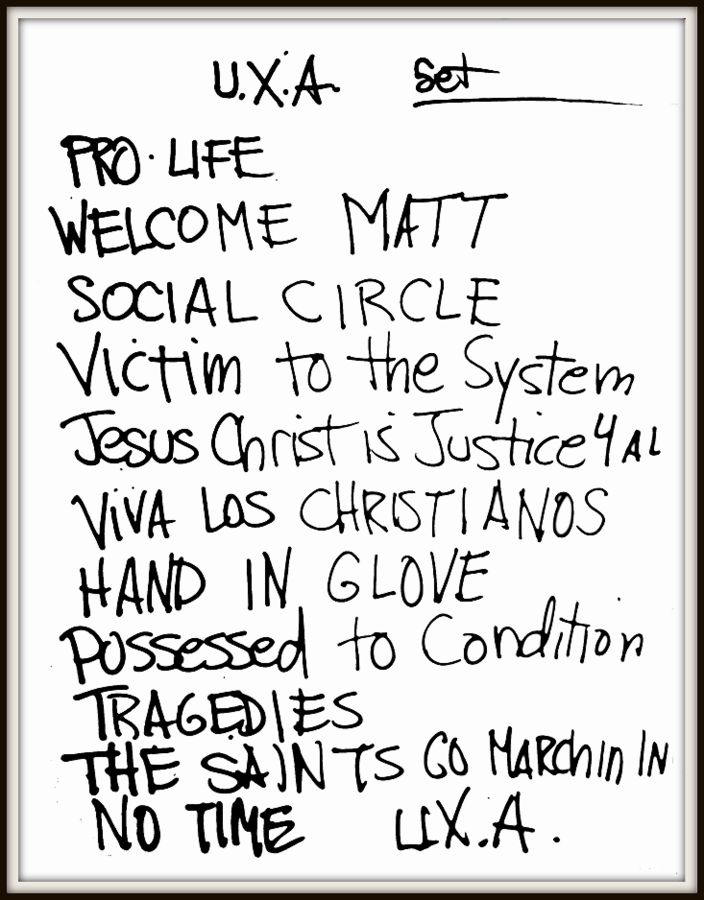 U.X.A. Set
PRO·LIFE
WELCOME MATT
SOCIAL CIRCLE
Victim to the System
Jesus Christ is Justice 4 AL
VIVA LOS CHRISTIANOS
HAND IN GLOVE
Possessed to Condition
TRAGEDIES
THE SAINTS GO MARCHIN IN
NO TIME U.X.A.